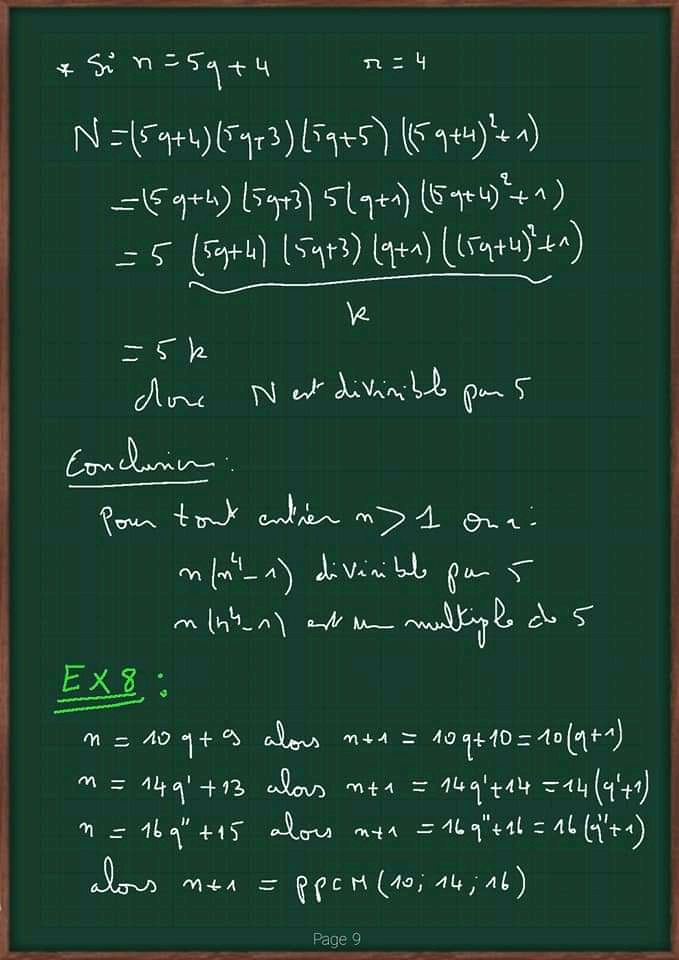 * Si n = 5q + 4 r = 4
N = (5q+4)(5q+3)(5q+5)((5q+4)²+1)
= (5q+4)(5q+3) 5(q+1)((5q+4)²+1)
= 5 (5q+4)(5q+3)(q+1)((5q+4)²+1)
k
= 5 k
donc N est divisible par 5
Conclusion :
Pour tout entier n > 1 on a :
n(n⁴-1) divisible par 5
n(n⁴-1) est un multiple de 5
EX 8 :
n = 10 q + 9 alors n+1 = 10q+10 = 10(q+1)
n = 14q' + 13 alors n+1 = 14q'+14 = 14(q'+1)
n = 16q" + 15 alors n+1 = 16q"+16 = 16(q"+1)
alors n+1 = PPCM(10; 14; 16)
Page 9